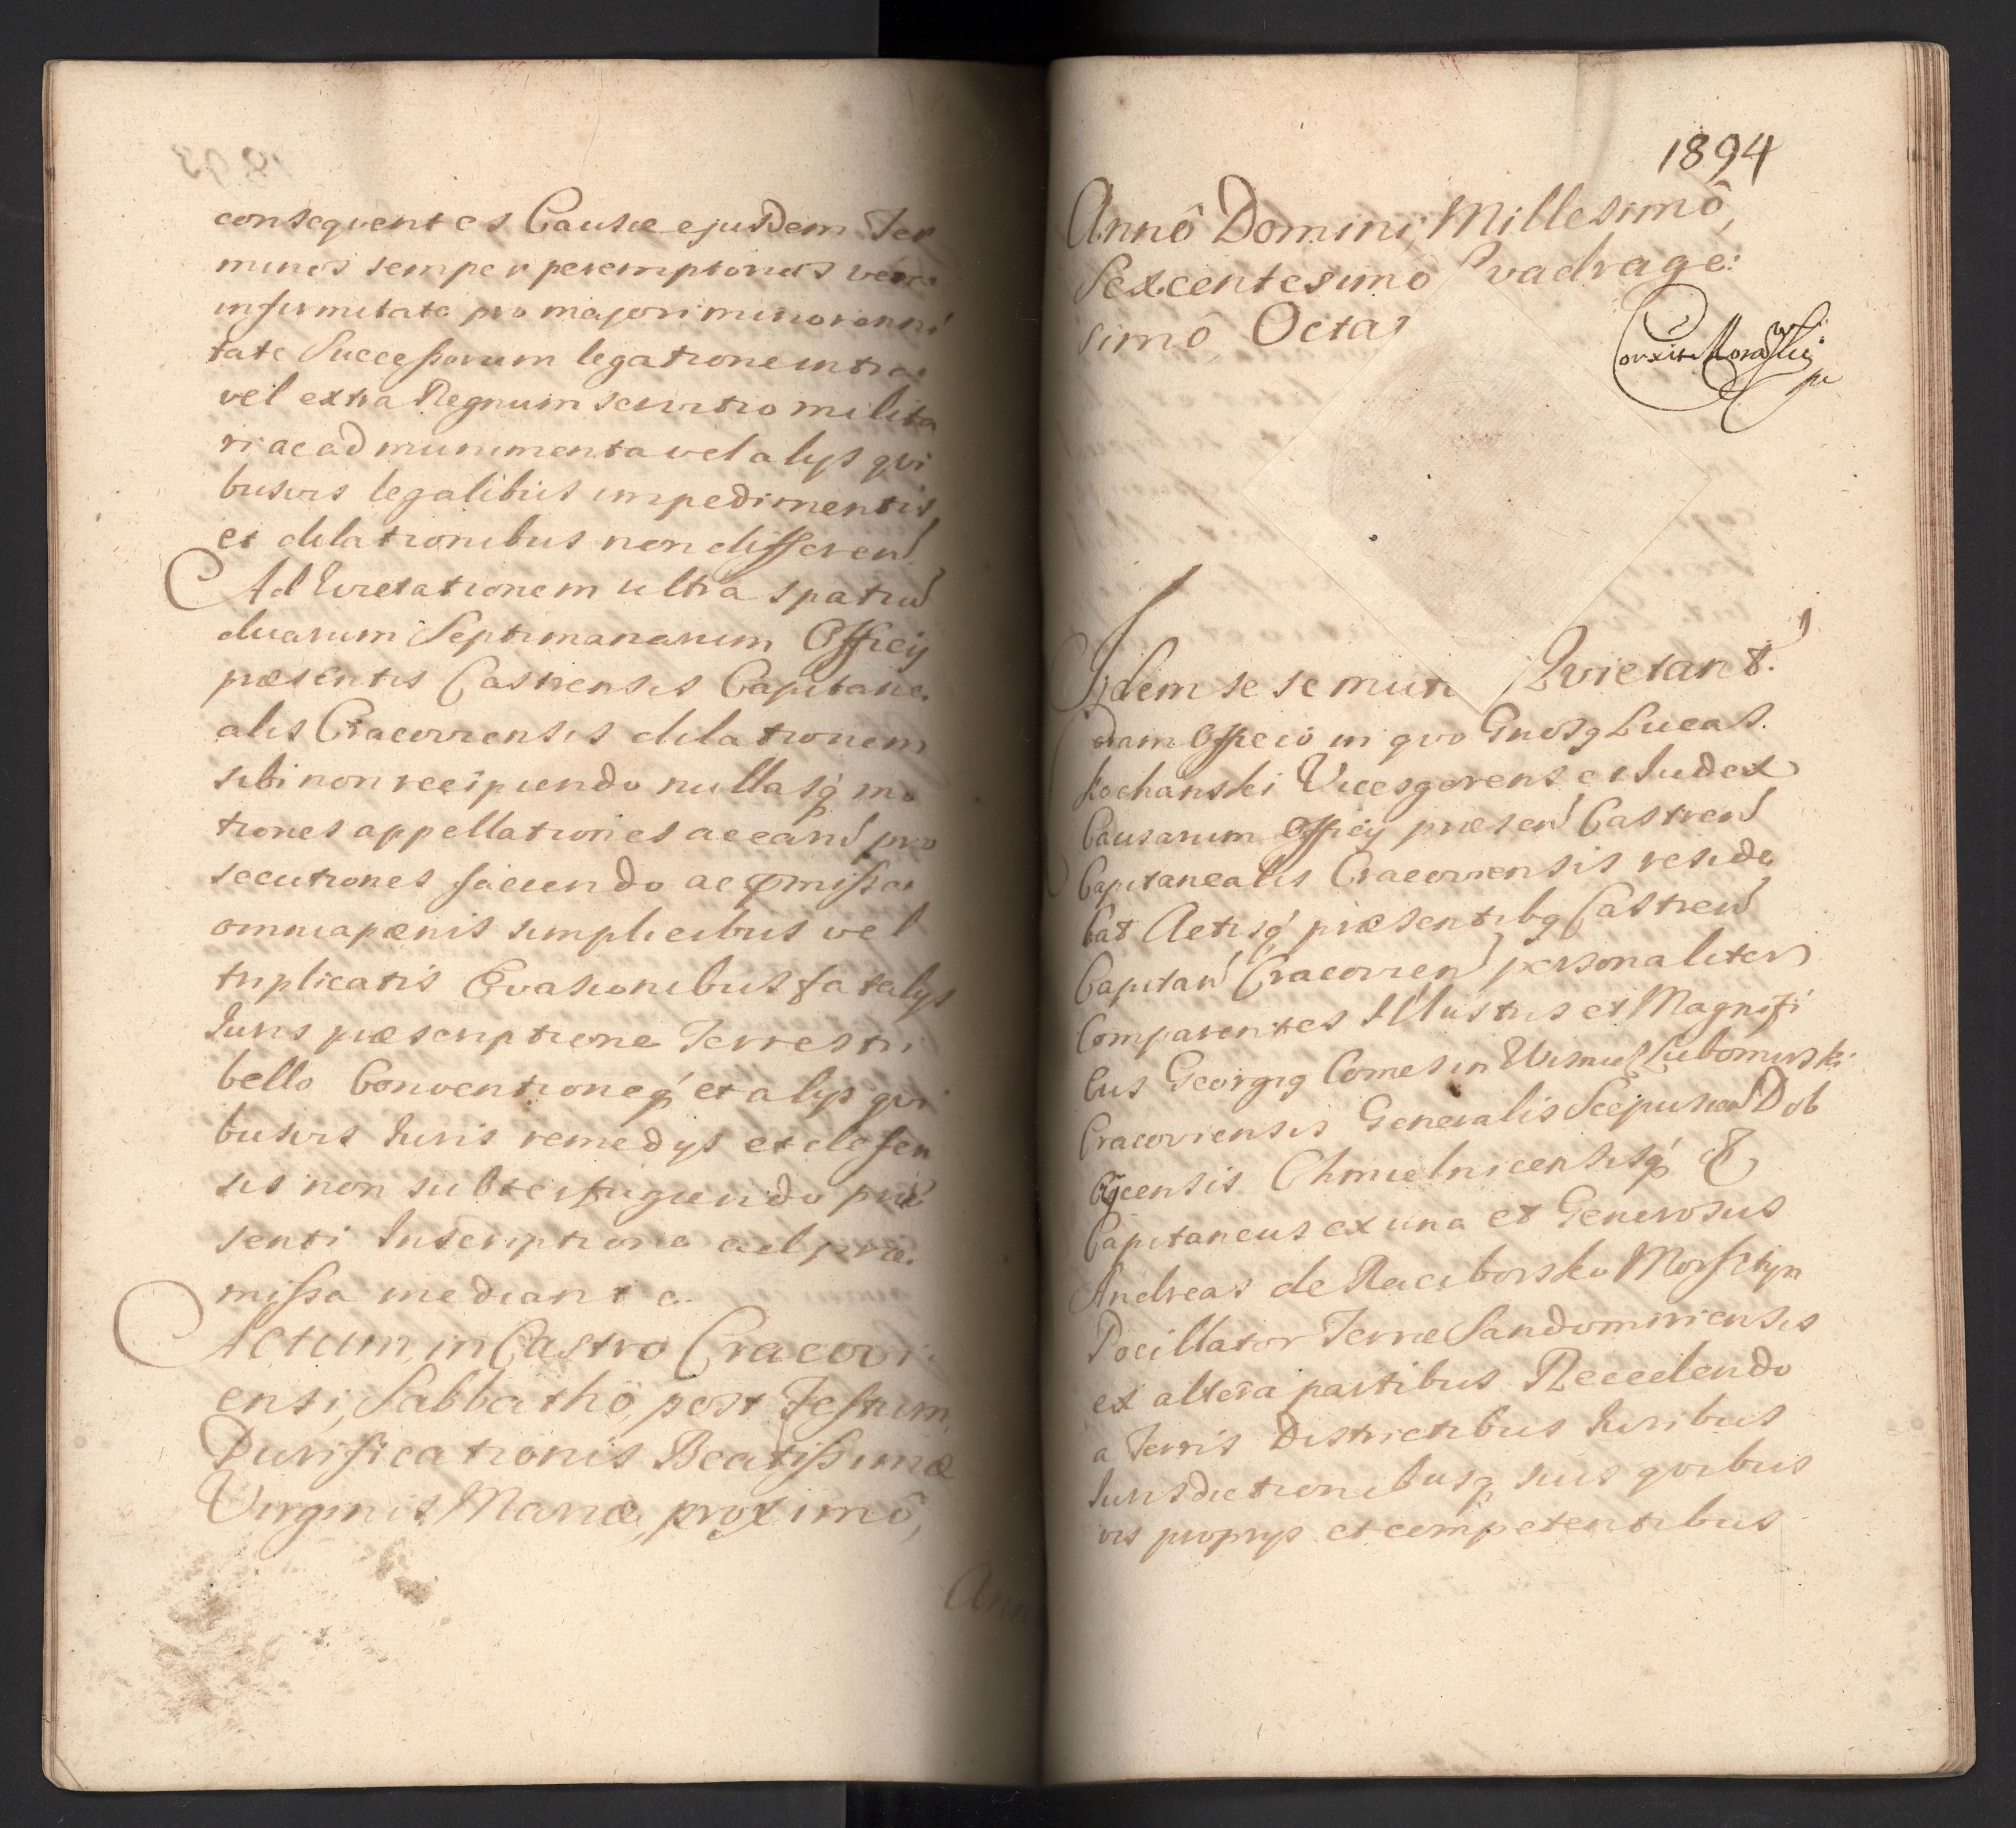 consequentes Causæ ejusdem Ter
minos semper peremptorios vera
infirmitate pro majori minorenni
tate Successorum legatione intra
vel extra Regnum servitio milita
ri ac ad munimenta vel alys qvi
busvis legalibus impedimentis
et dilationibus non differen
Ad Qvietationem ultra spatiu
duarum Septimanarum Officy
præsentis Castrensis Capitane
alis Cracoviensis dilationem
sibi non recipiendo nullasq mo
tiones appellationes ac earu pro
secutiones faciendo ac præmissa
omnia pænis simplicibus vel
triplicatis Evasionibus fatalys
Iuris præscriptione Terrestri
bello Conventioneq et alys qvi
busvis Iuris remedys et defen
sis non subterfugiendo præ
senti Inscriptione ad præ
missa mediante.
Actum in Castro Cracovi
ensi, Sabbathô post Festum
Purificationis Beatissimæ
Virginis Mariæ proximô,
Ann
1894
Annô Domini Millesimô,
Sexcentesimô Qvadrage:
simô, Octa
Idem se se mut Qvietant.
Coram Officio in qvo Gnosq Lucas
Kochanski Vicesgerens et Iudex
Causarum Officy præsen Castren
Capitanealis Cracoviensis reside
bat Actisq præsentibq Castren
Capitan Cracovien personaliter
Comparentes Illustris et Magnifi
cus Georgiq Comes in Wisnicz Lubomirski
Cracoviensis Generalis Scepusien Dob
czycensis Chmielnicensisq &
Capitaneus ex una et Generosus
Andreas de Raciborsko Morsztyn
Pocillator Terræ Sandomiriensis
ex altera partibus Recedendo
a Terris Districtibus Iuribus
Iurisdictionibusq suis qvibus
vis proprys et competentibus